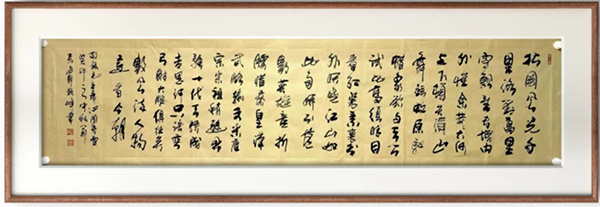 北国风光千
里冰封万里
雪飘望长城内
外惟余莽莽大河
上下顿失滔滔山
舞银蛇原驰
蜡象欲与天公
试比高须晴日
看红装素裹分
外妖娆江山如
此多娇引无
数英雄竞折
腰惜秦皇汉
武略输文采唐
宗宋祖稍逊风
骚一代天骄成
吉思汗只识弯
弓射大雕俱往矣
数风流人物
还看今朝
沁园春雪
癸卯